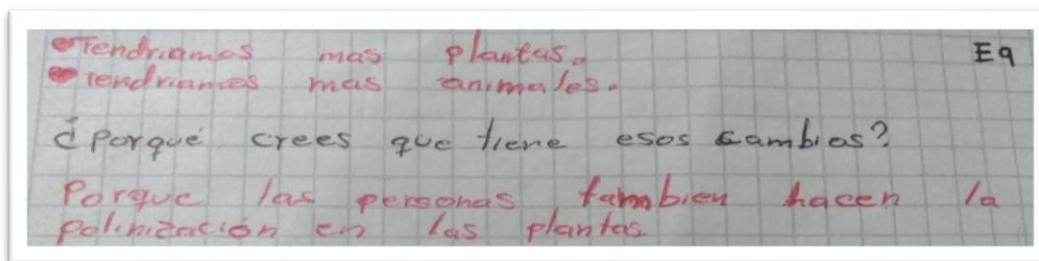 Tendriamos mas plantas. E9
Tendriamos mas animales.
¿Porqué crees que tiene esos cambios?
Porque las personas tambien hacen la
polinización en las plantas